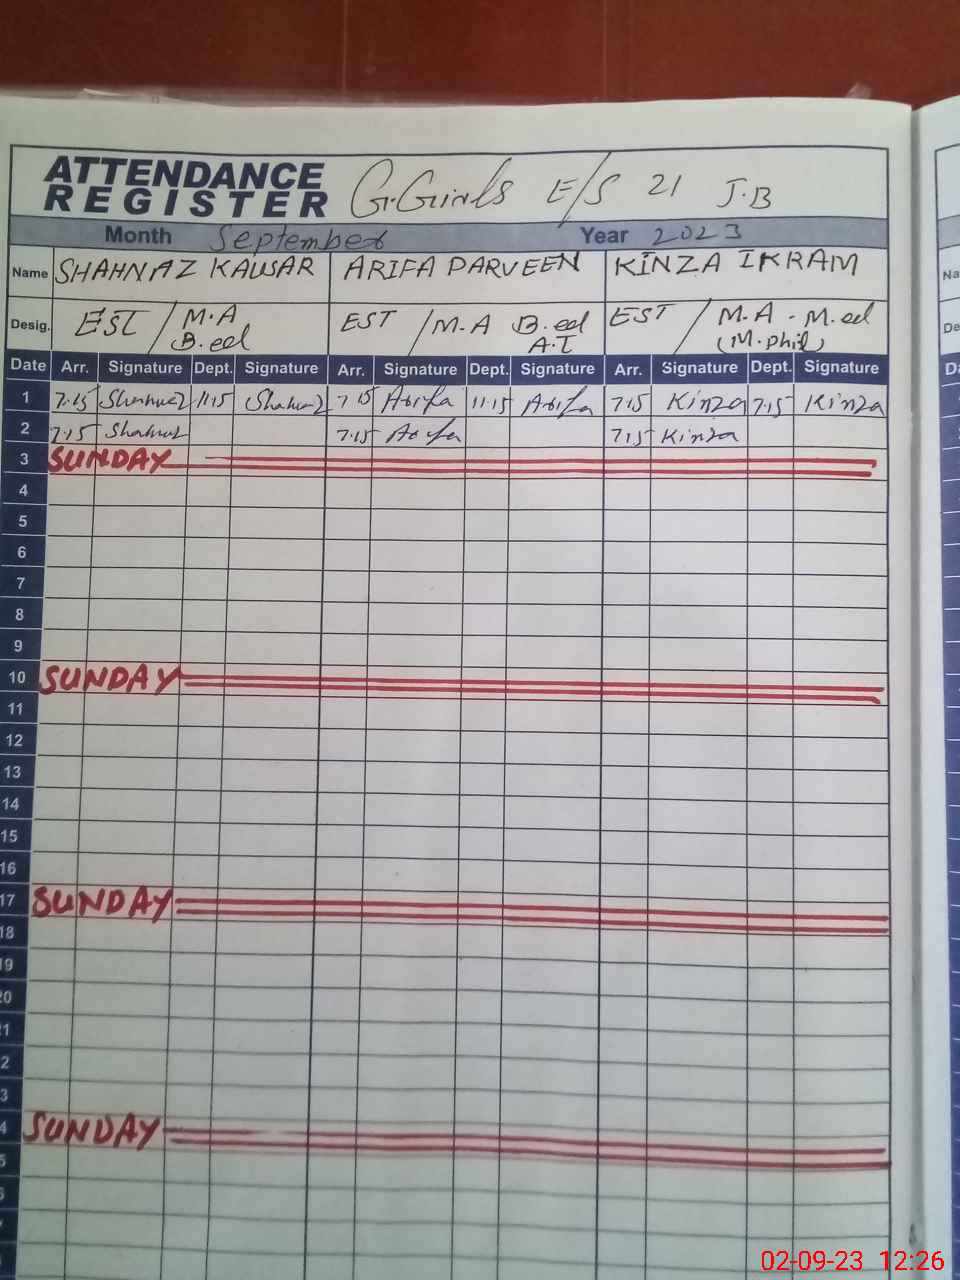 ATTENDANCE REGISTER G.Girls E/S 21 J.B
Month September Year 2023
Name SHAHNAZ KAUSAR ARIFA PARVEEN KINZA IKRAM
Desig. EST / M.A B.ed EST / M.A B.ed A.T EST / M.A - M.ed (M.phil)
Date Arr. Signature Dept. Signature Arr. Signature Dept. Signature Arr. Signature Dept. Signature
1 7.15 Shahnaz 11.15 Shahnaz 7.15 Arifa 11.15 Arifa 7.15 Kinza 7.15 Kinza
2 7.15 Shahnaz 7.15 Arifa 7.15 Kinza
3 SUNDAY
4
5
6
7
8
9
10 SUNDAY
11
12
13
14
15
16
17 SUNDAY
18
19
20
1
2
3
4 SUNDAY
5
02-09-23 12:26